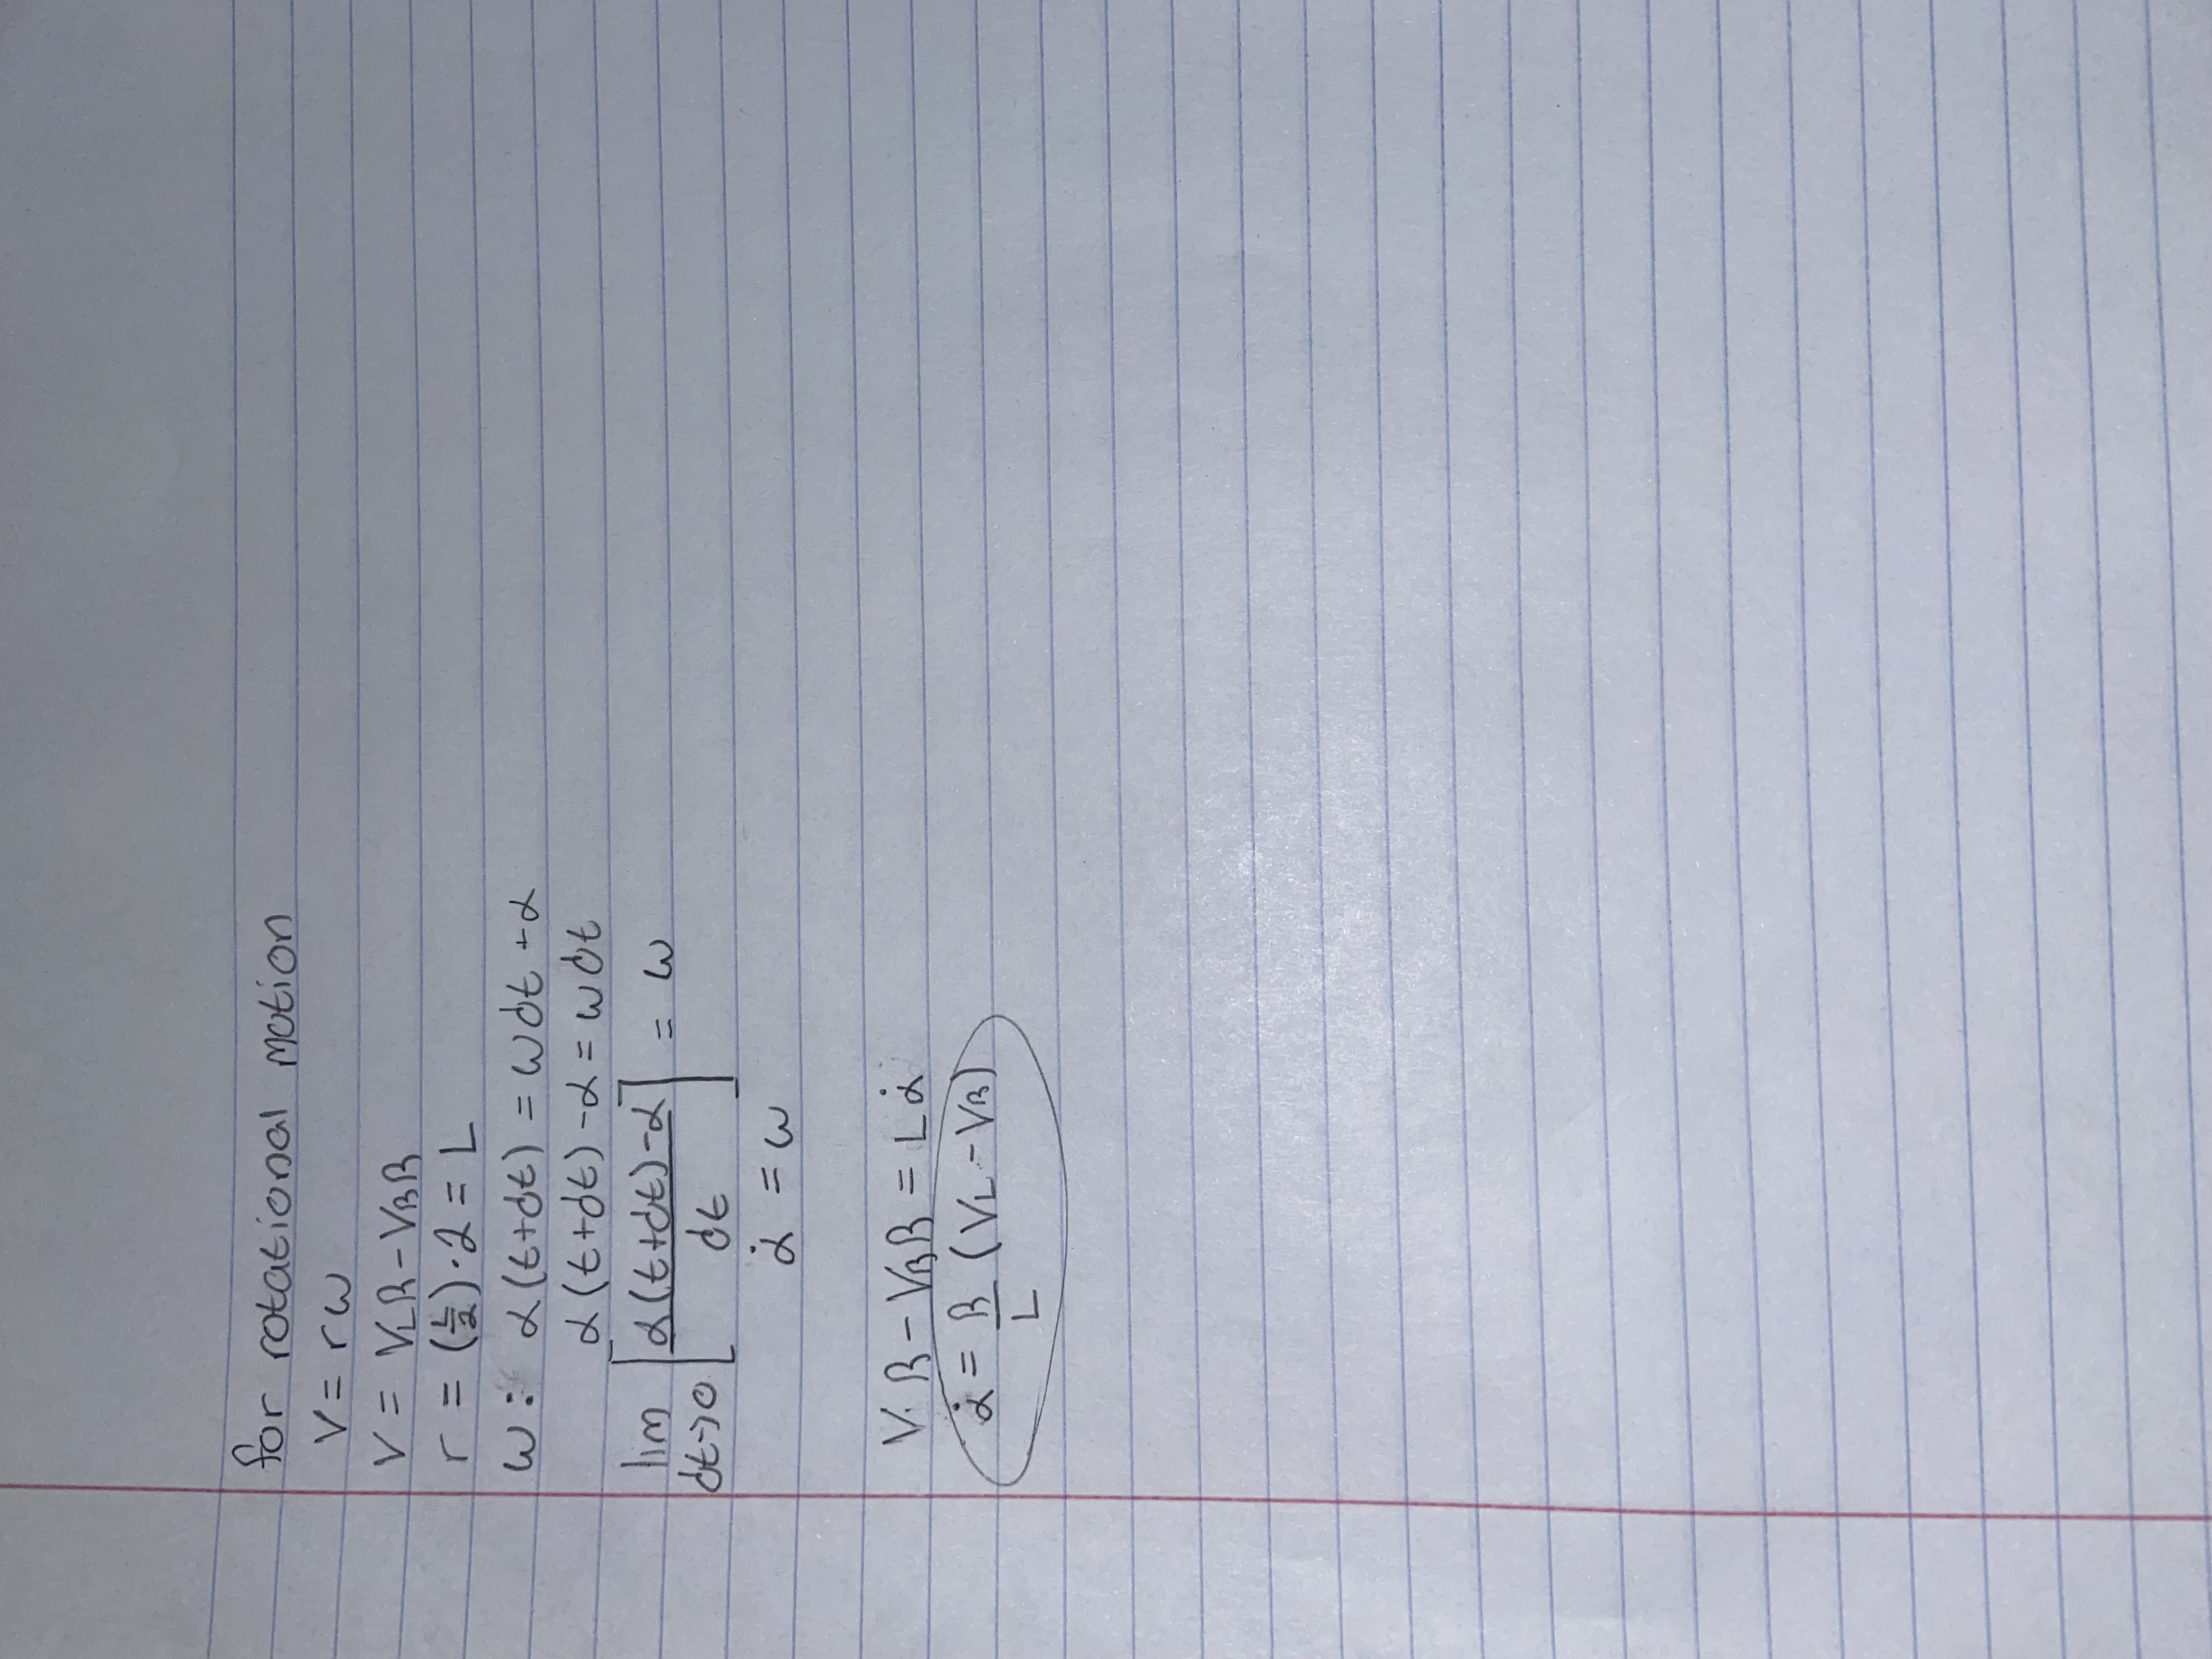 for rotational motion
V = rω
V = V_L R - V_R R
r = (L/2) · 2 = L
ω: α(t+dt) = ωdt + α
α(t+dt) - α = ωdt
lim dt→0 [α(t+dt)-α / dt] = ω
α̇ = ω
V. R - V_R R = Lα̇
α̇ = R/L (V_L - V_R)